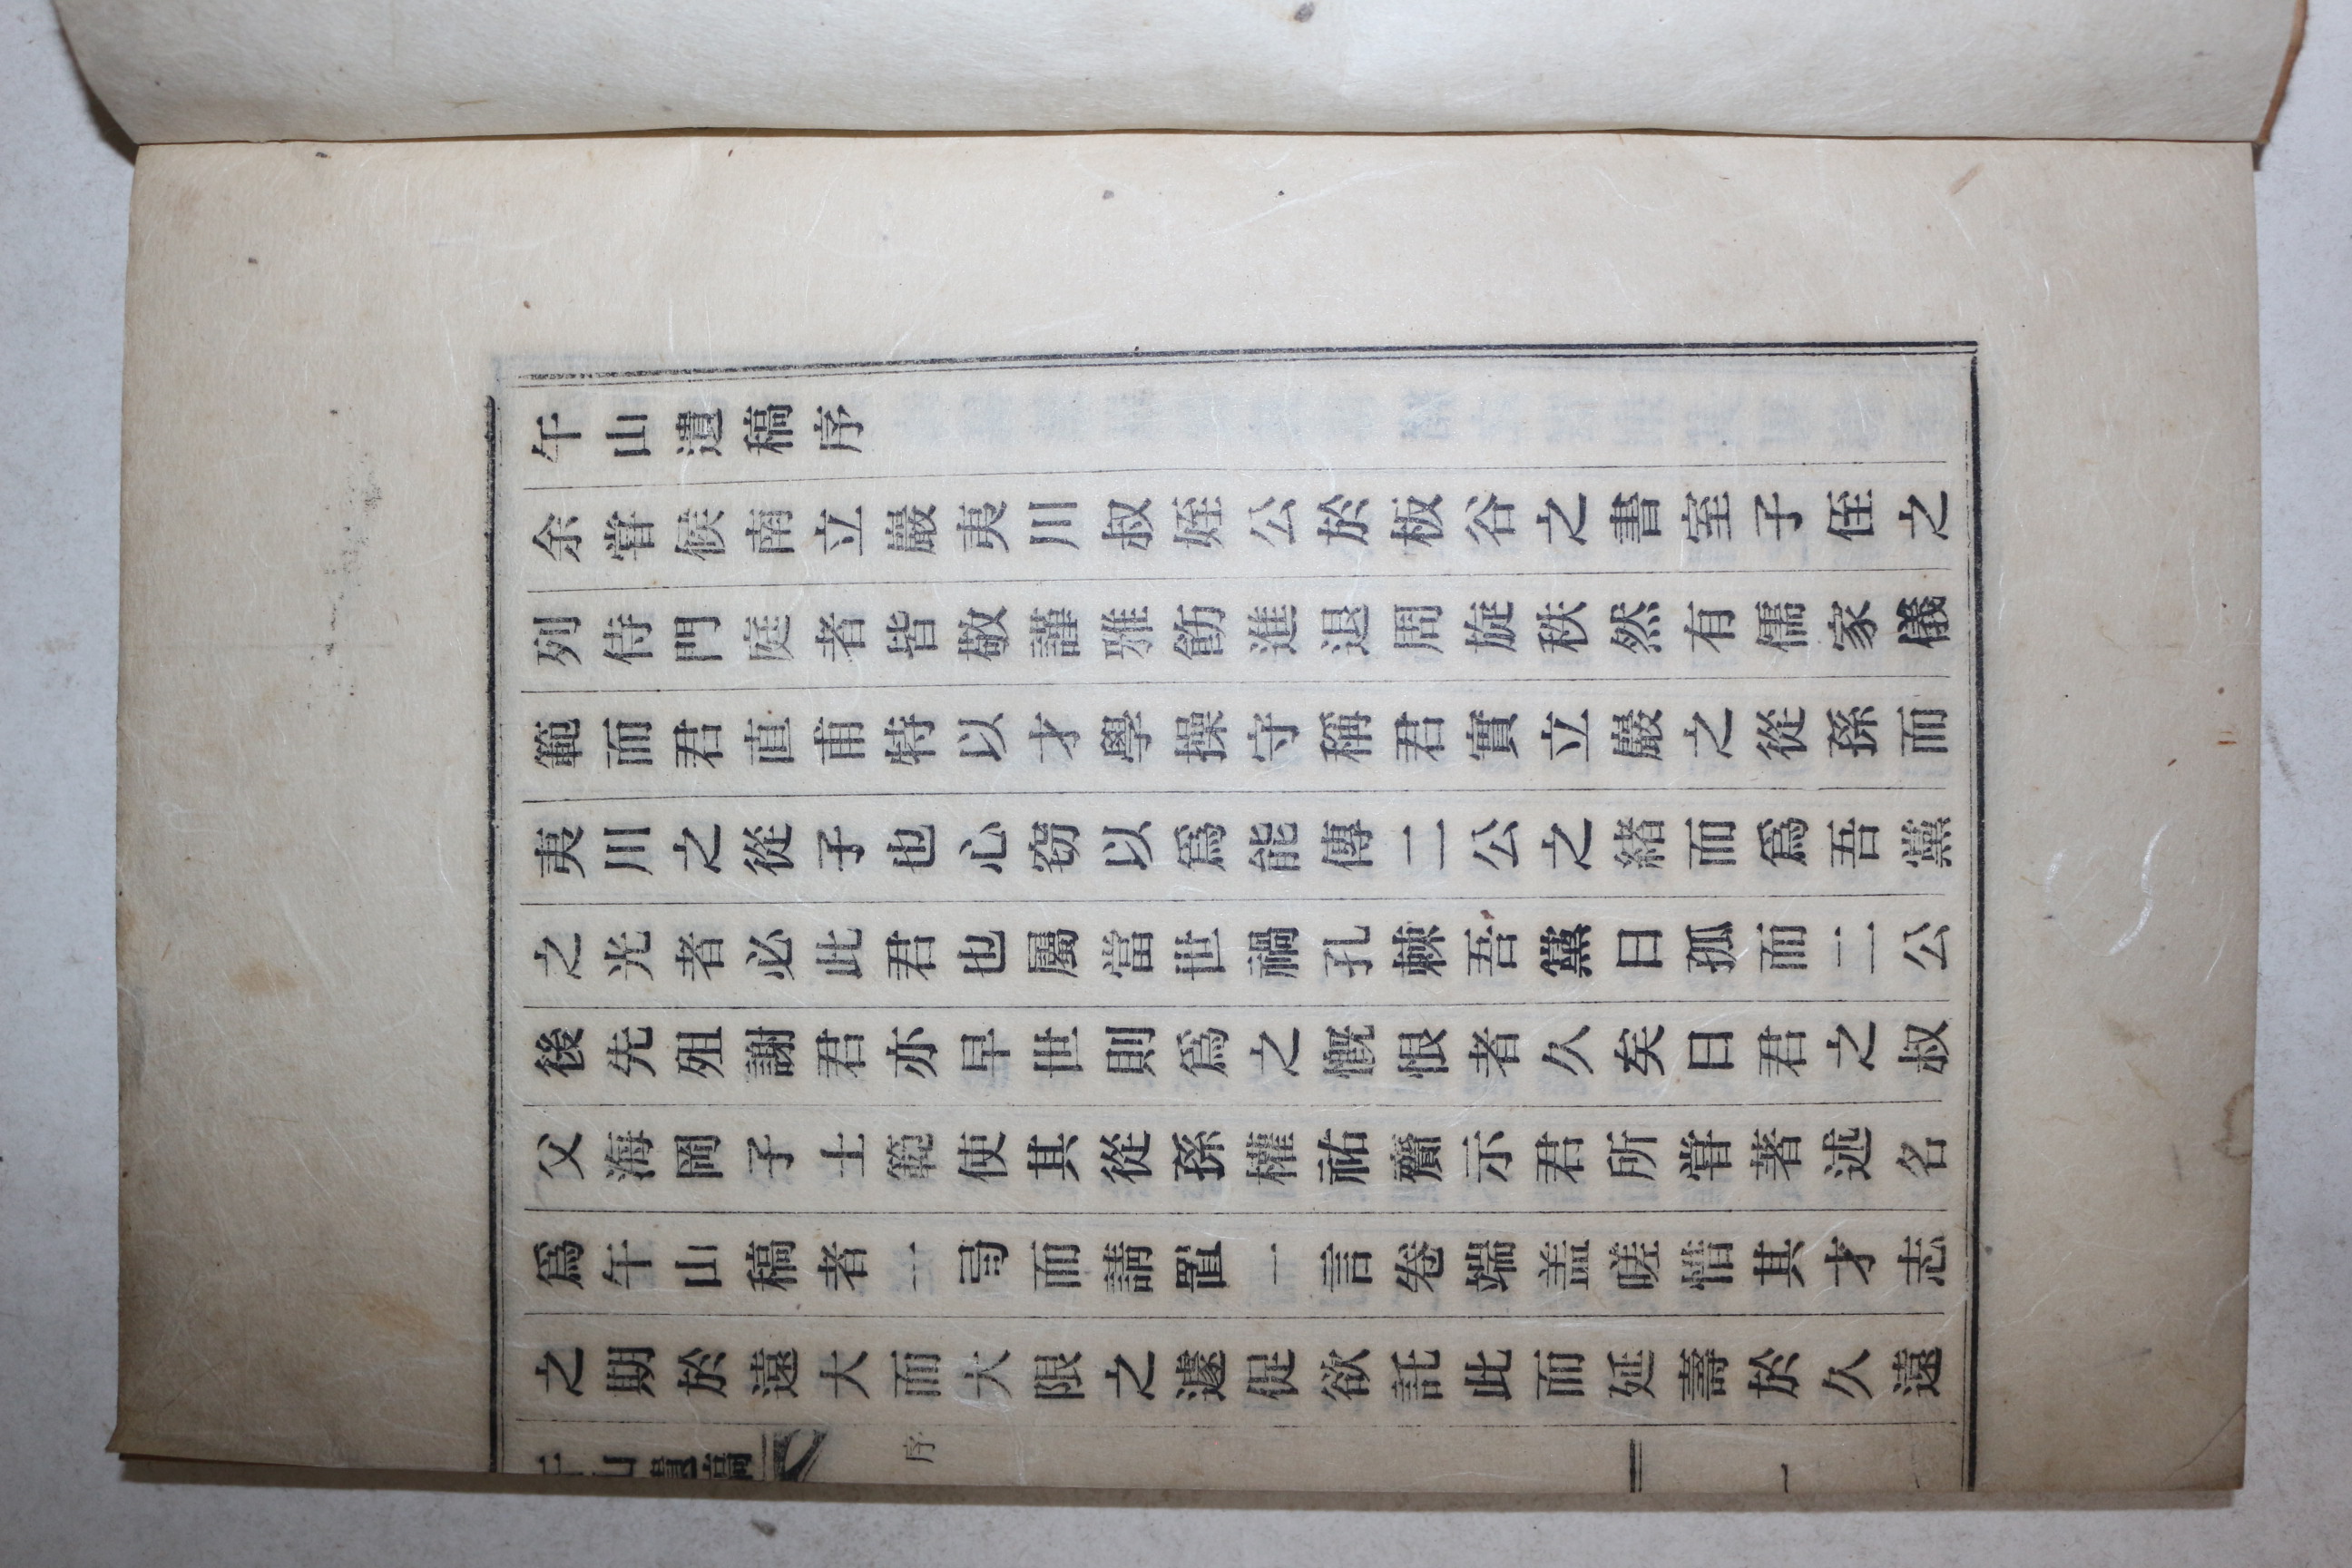 午山遺稿序
余甞候南立巖夷川叔姪公於板谷之書室子侄之
列侍門庭者皆敬謹雅飭進退周旋秩然有儒家儀
範而君直甫特以才學操守稱君實立巖之從孫而
夷川之從子也心窃以爲能傳二公之緖而爲吾黨
之光者必此君也屬當世禍孔棘吾黨日孤而二公
後先殂謝君亦早世則爲之慨恨者久矣日君之叔
父海岡子士範使其從孫權祐齎示君所甞著述名
爲午山稿者一弓而請置一言卷端盖嗟惜其才志
之期於遠大而大限之遽促欲託此而延壽於久遠
午山遺稿 序 一